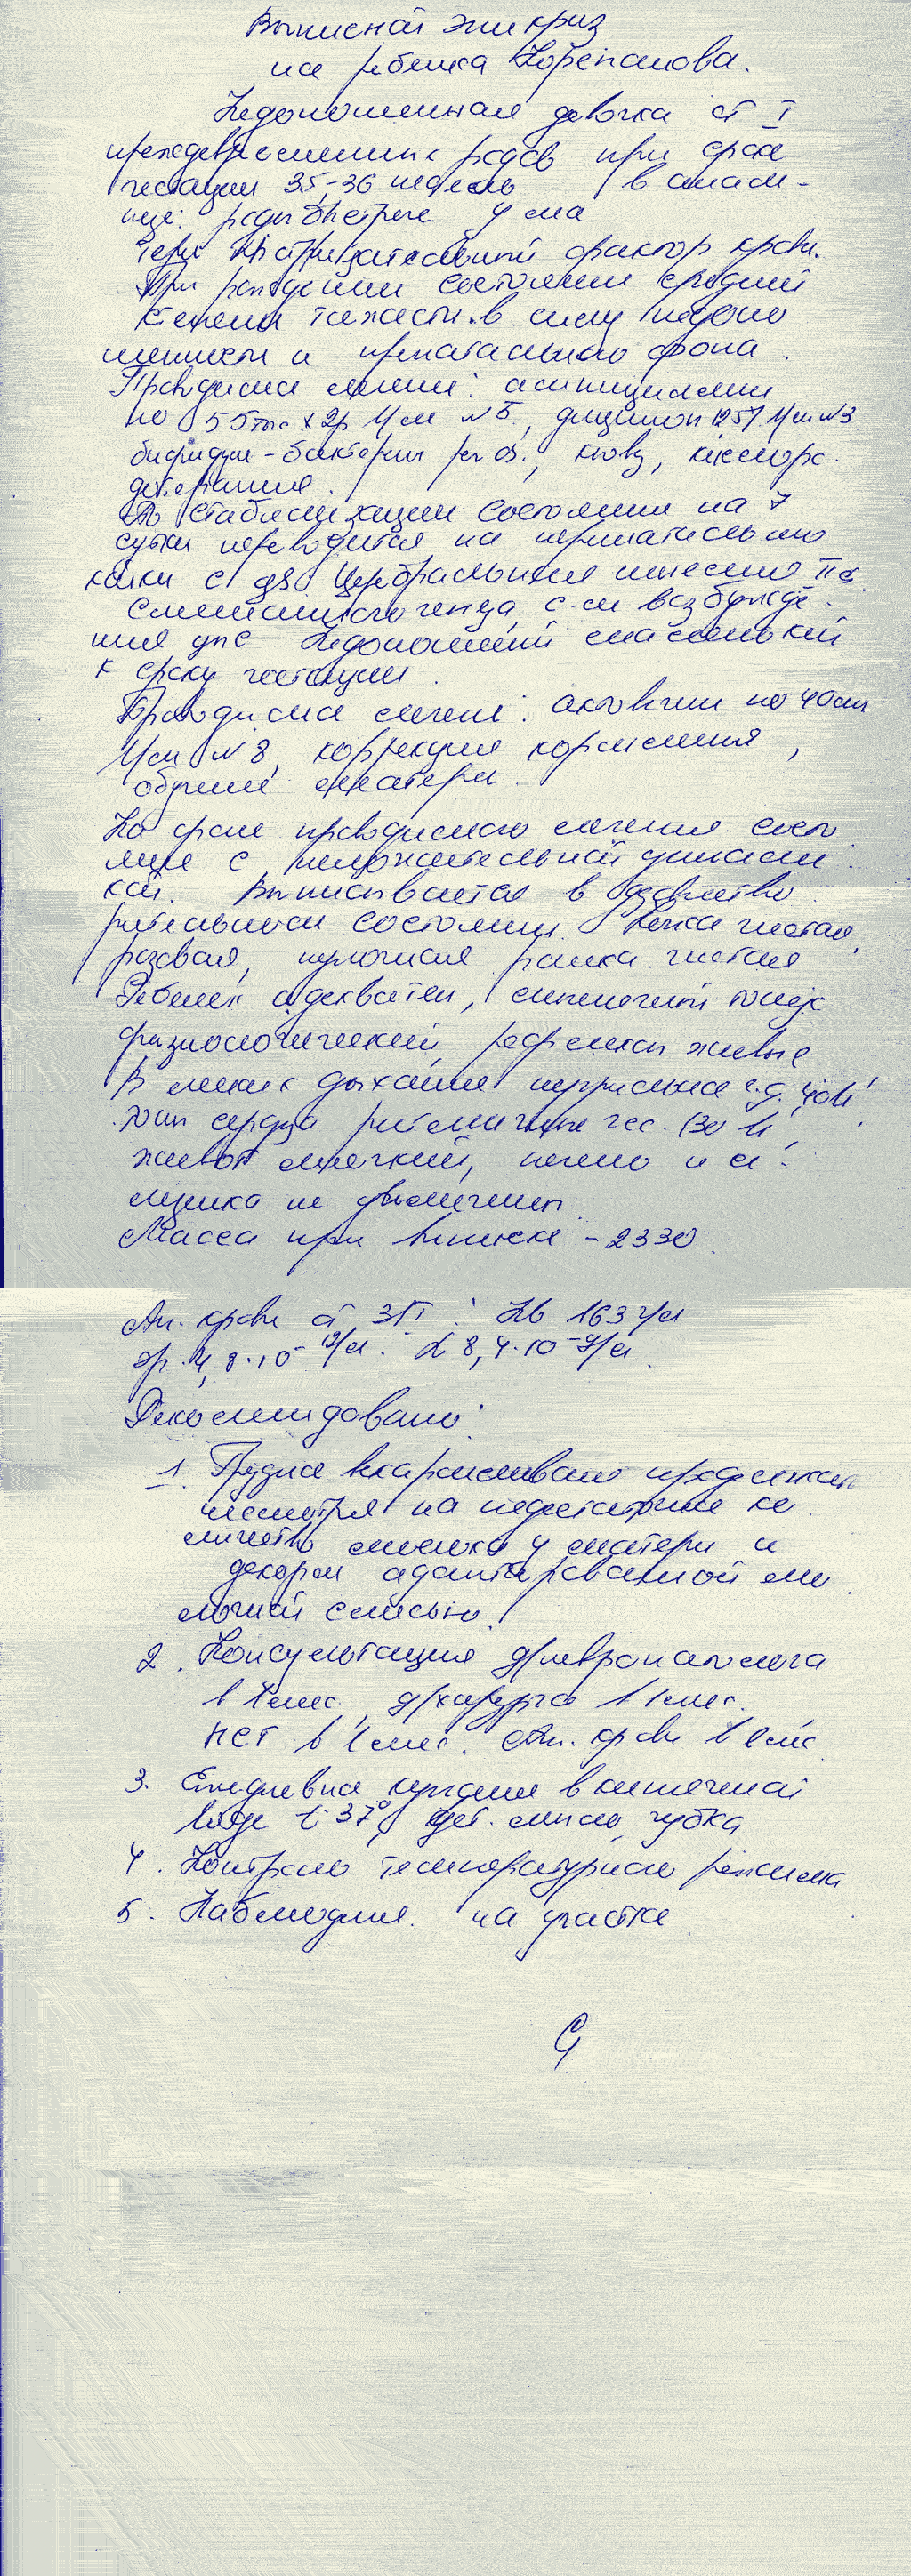 Выписной эпикриз
на ребенка Корепанова.
Недоношенная девочка от I
преждевременных родов при сроке
гестации 35-36 недель в анам-
незе: роды быстрые у ма
тери отрицательный фактор крови.
При рождении состояние средней
степени тяжести в силу недоно
шенности и пренатального фона.
Проводилось лечение: ампициллин
по 55 тыс х 2р в/м N5, дицинон 12,5% в/м N3
бифидум-бактерин per os, кювез, кислород.
дотация.
По стабилизации состояния на 7
сутки переводится на перинатальные
койки с ds: Церебральная ишемия II ст
смешанного генеза, с-м возбужде-
ния цнс. Недоношенный маленький
к сроку гестации.
Проводилось лечение: актовегин по 40 мг
в/м N 8, коррекция кормления,
обучение матери.
На фоне проводимого лечения состо
яние с положительной динами
кой. Выписывается в удовлетво
рительном состоянии. Кожа чистая
розовая, пупочная ранка чистая
Ребенок адекватен, мышечный тонус
физиологический, рефлексы живые
В легких дыхание пуэрильное ч.д. 40 в 1'
тоны сердца ритмичные чсс. 130 в 1'
живот мягкий, печень и се-
лезенка не увеличены
Масса при выписке - 2330.
Ан. крови от 31/I: Hb 163 г/л
эр. 4,8·10 12/л. L 8,4·10 9/л
Рекомендовано:
1. Грудное вскармливание продолжать
несмотря на недостаточное ко
личество молока у матери и
докорм адаптированной мо
лочной смесью!
2. Консультация д/невропатолога
в 1 мес, д/хирурга в 1 мес.
НСГ в 1 мес. Ан. крови в 1 мес
3. Ежедневное купание в кипяченой
воде t 37°, дет. мыло, губка
4. Контроль температурного режима
5. Наблюдение на участке